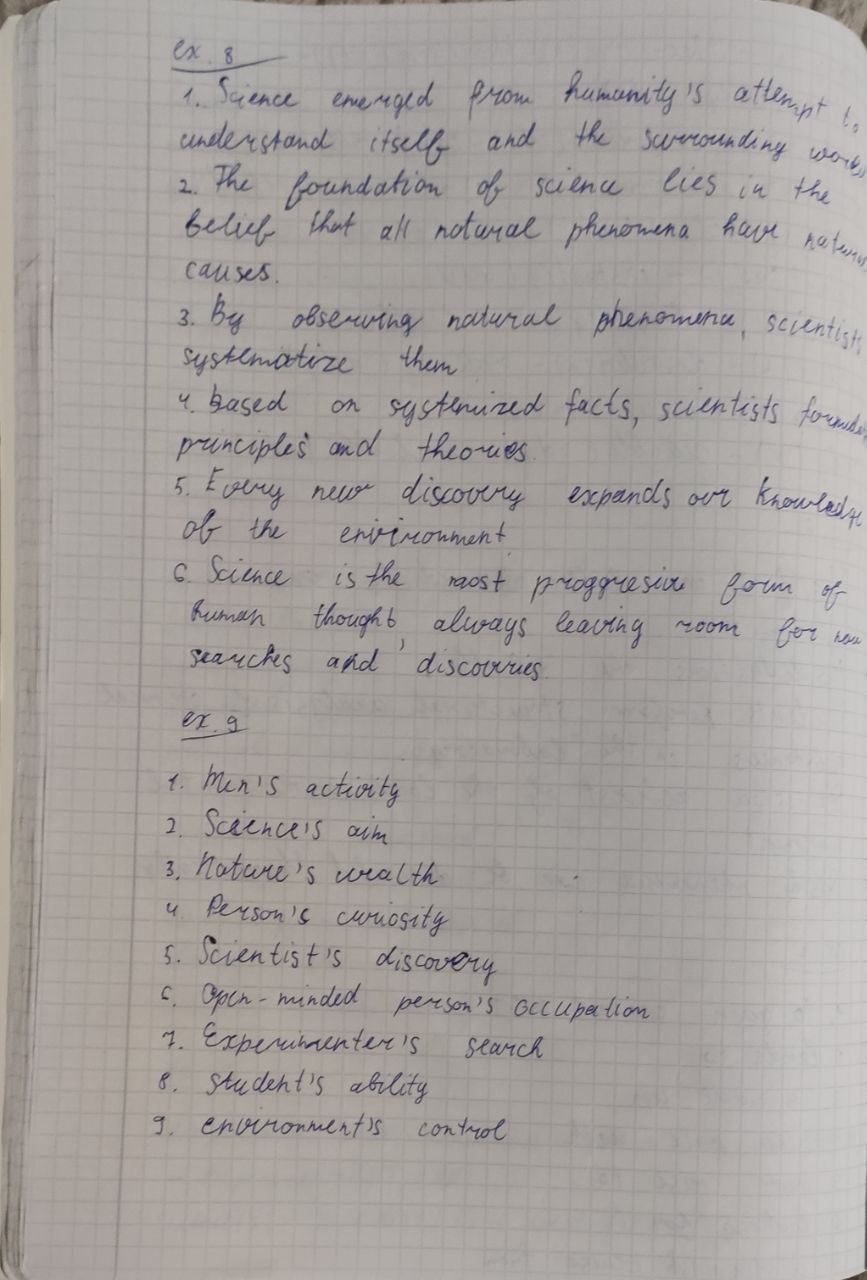 ex. 8
1. Science emerged from humanity's attempt to
understand itself and the surrounding
2. The foundation of science lies in the
belief that all natural phenomena have
causes.
3. By observing natural phenomena, scientists
systematize them
4. Based on systemized facts, scientists
principles and theories.
5. Every new discovery expands our knowledge
of the environment
6. Science is the most proggresive form of
human thought, always leaving room for new
searches and discoveries.
ex. 9
1. Men's activity
2. Science's aim
3. Nature's wealth
4. Person's curiosity
5. Scientist's discovery
6. Open-minded person's occupation
7. Experimenter's search
8. student's ability
9. environment's control